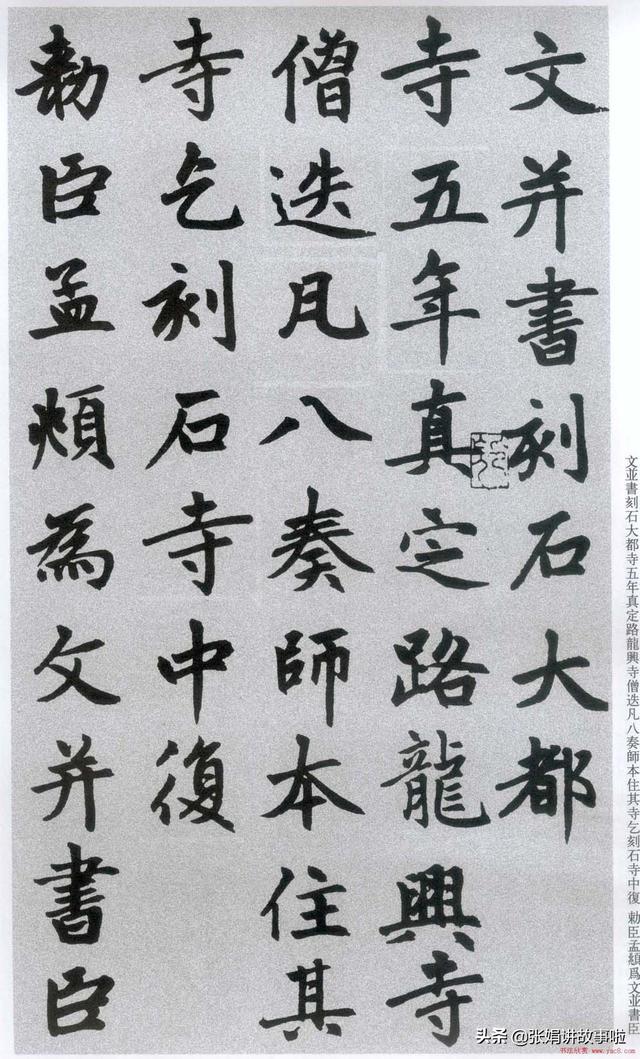 文并書刻石大都
寺五年真定路龍興寺
僧迭凡八奏師本住其
寺乞刻石寺中復
勅臣孟頫為文并書臣
文並書刻石大都寺五年真定路龍興寺僧迭凡八奏師本住其寺乞刻石寺中復 勅臣孟頫爲文並書臣
头条 @张娟讲故事啦
书法欣赏 www.yac8.com